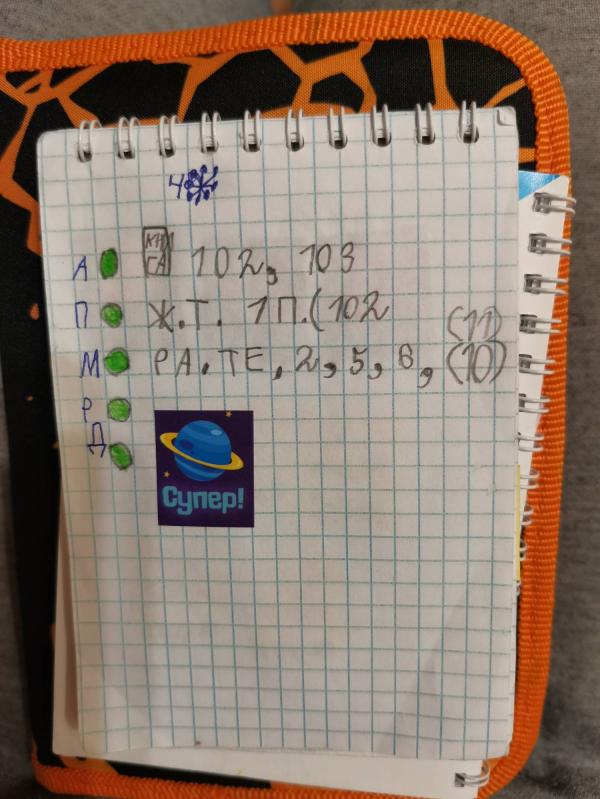 4
А КН СА 102, 103
П Ж.Т. 1П.(102
(11)
М РА.ТЕ, 2, 5, 6, (10)
Р
Д
Супер!